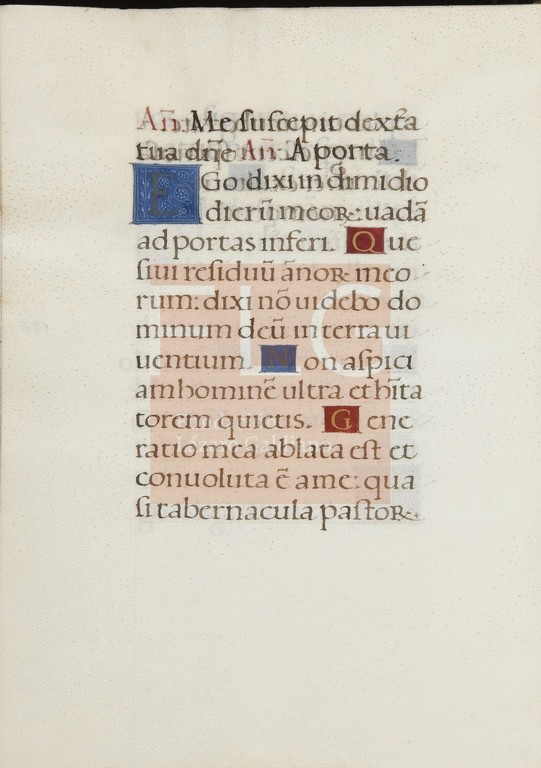 Añ. Me suscepit dext̃a
tua dñe Añ. A porta.
EGo dixi in dimidio
dierũ meoꝝ: uadã
ad portas inferi. Que
siui residuũ ãnoꝝ meo
rum: dixi nõ uidebo do
minum deũ in terra ui
uentium. Non aspici
am hominẽ ultra et hĩta
torem quietis. Gene
ratio mea ablata est et
conuoluta ẽ a me: qua
si tabernacula pastoꝝ.
TLC
Lázaro Galdiano